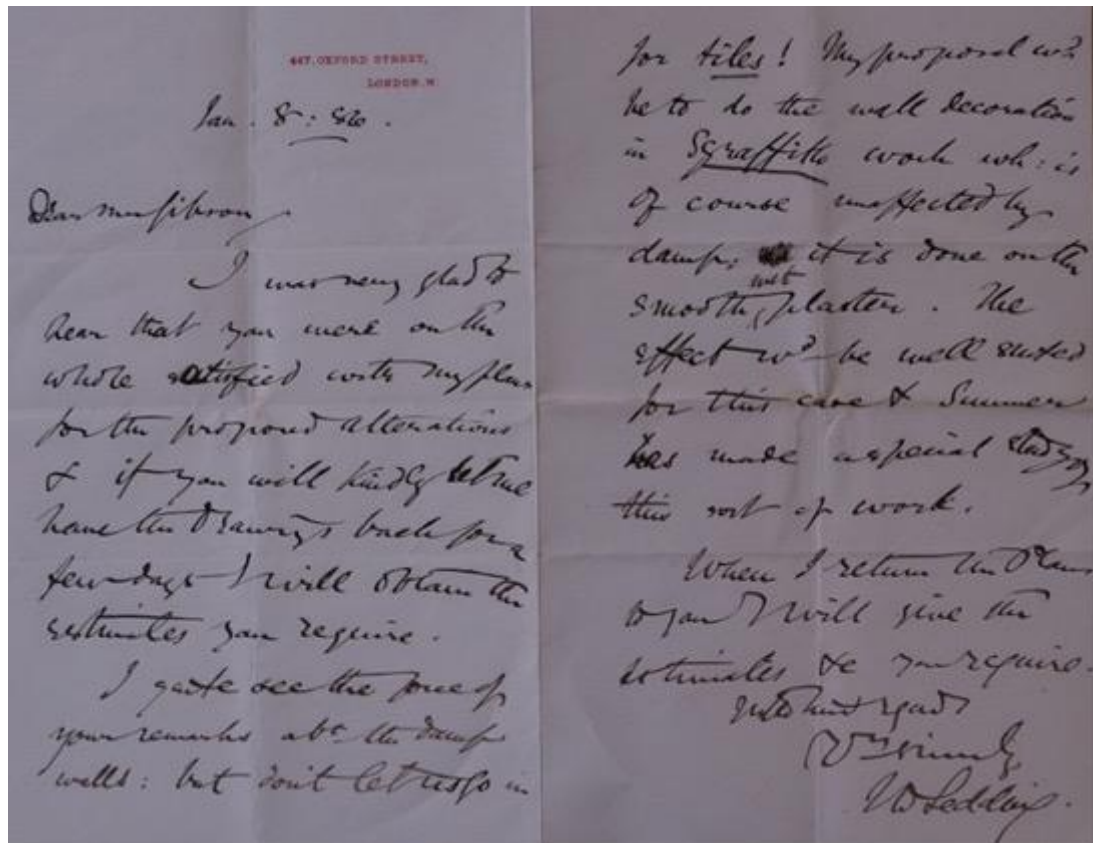 447, OXFORD STREET,
LONDON. W
Jan. 8 : 86.
Dear Mr Gibson,
I was very glad to
hear that you were on the
whole satisfied with my plans
for the proposed alterations
& if you will kindly let me
have the Drawings back for a
few days I will obtain the
estimates you require.
I quite see the force of
your remarks abt the damp
walls: but don't let us go in
for tiles! My proposal wd
be to do the wall decoration
in Sgraffitto work wh: is
of course unaffected by
damp, it is done on the
smooth wet plaster. The
effect wd be well suited
for this case & Summer
has made a special study of
this sort of work.
When I return the Plans
to you I will give the
estimates &c you require.
With kind regards
Yrs sincerely,
Sedding.